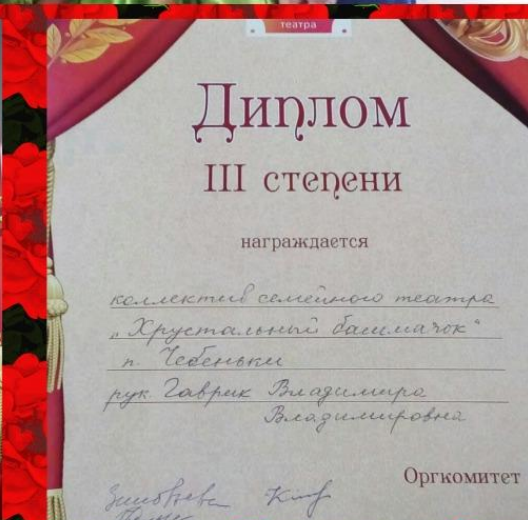 театра
Диплом
III степени
награждается
коллектив семейного театра
„Хрустальный башмачок"
п. Чебеньки
рук. Гаврик Владимира
Владимировна
Оргкомитет